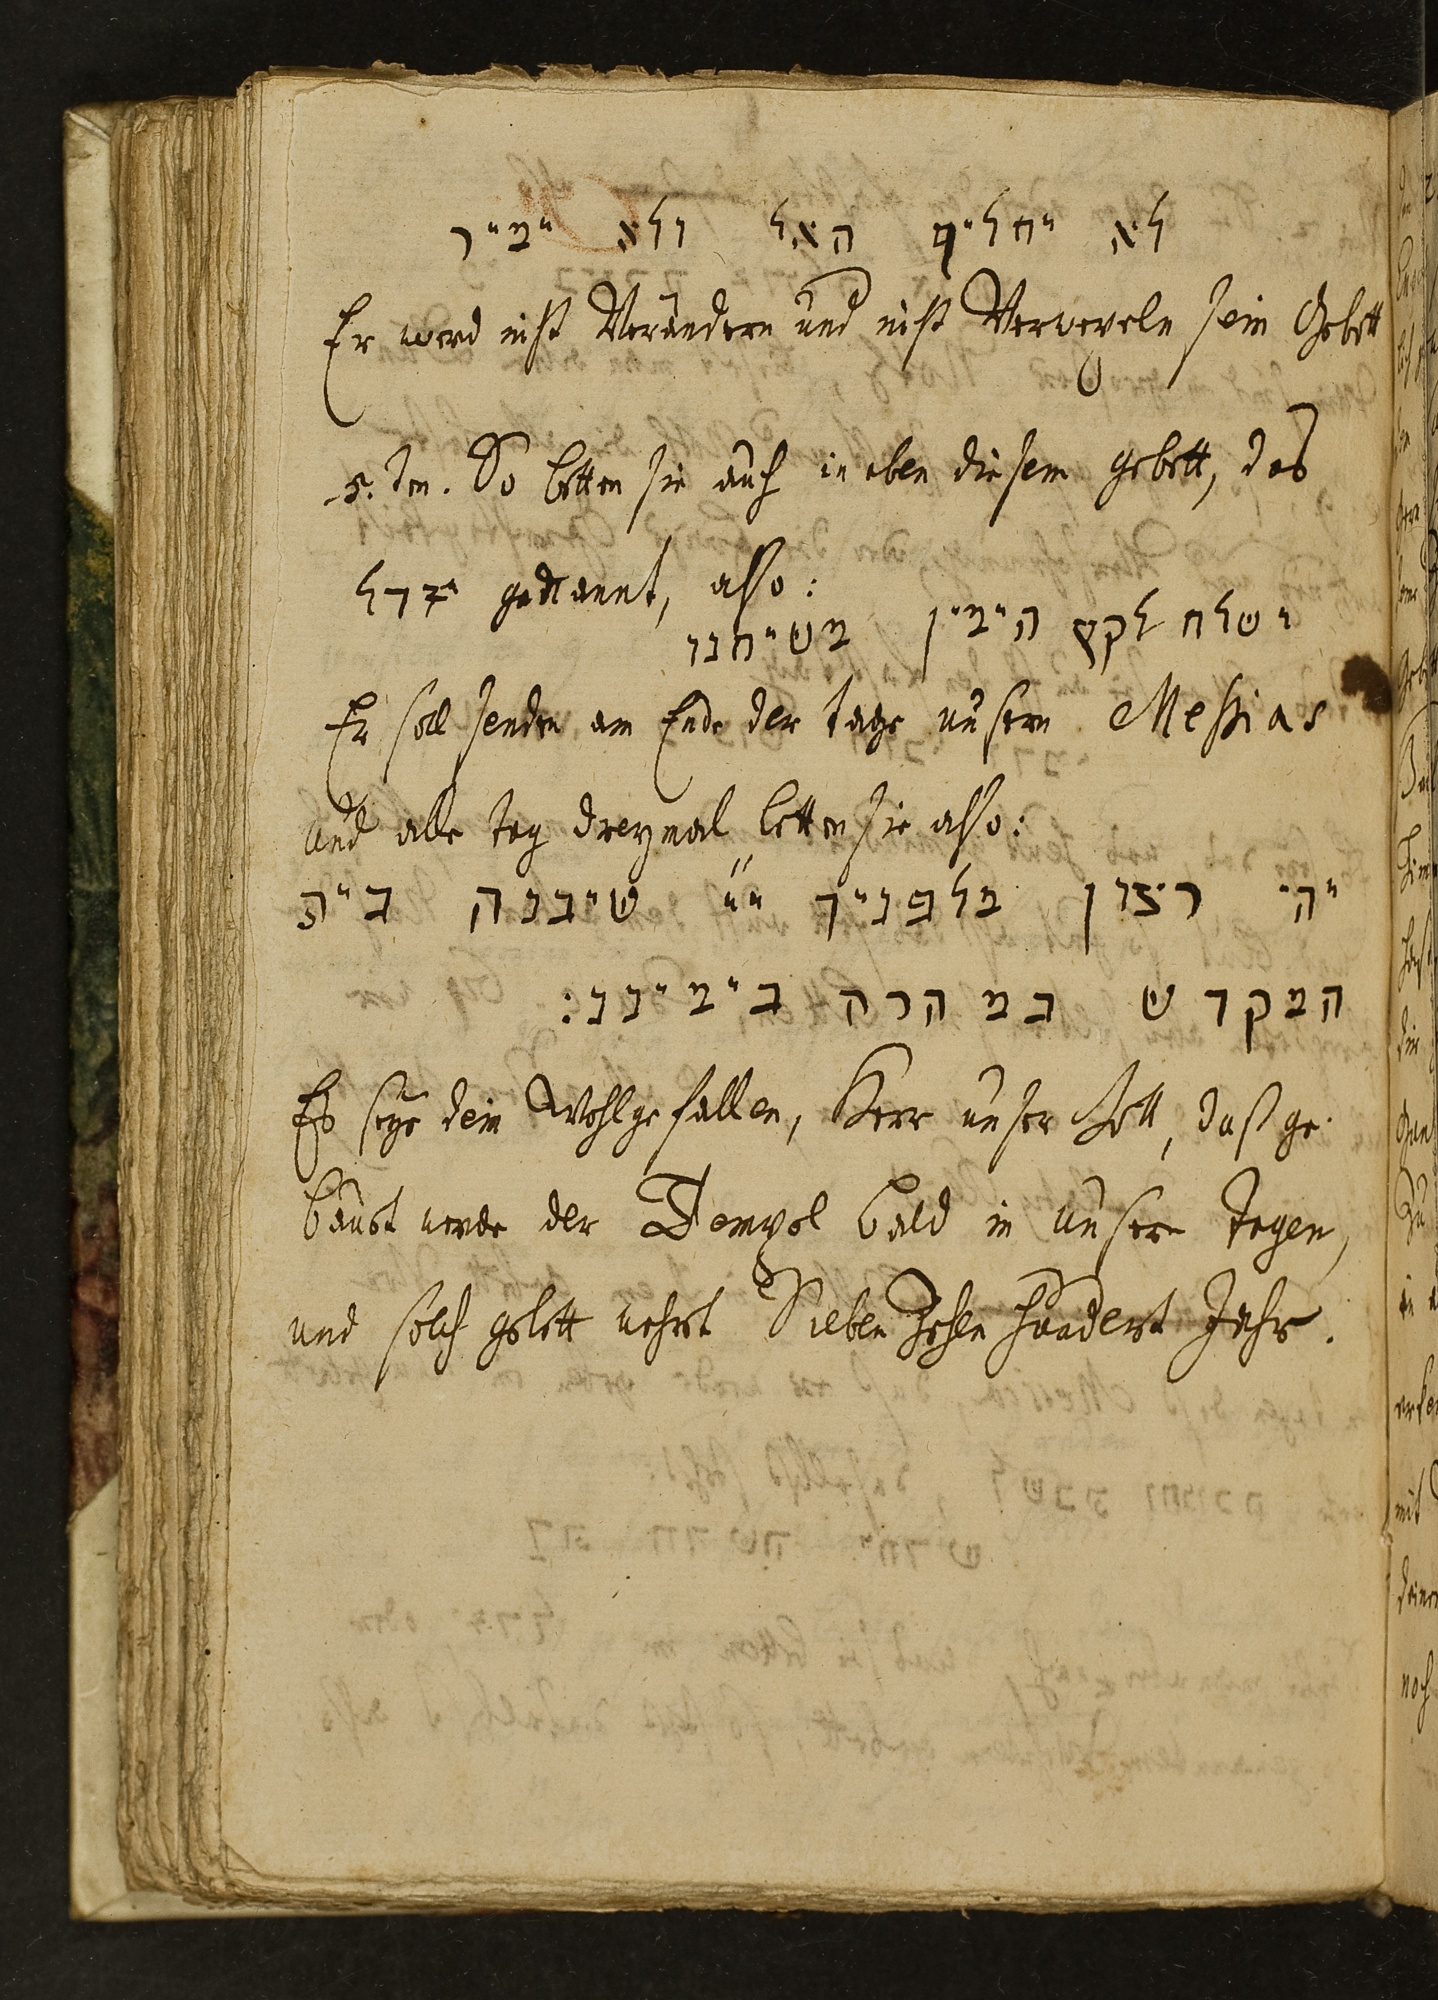 לא יחליף האל ולא ימיר
Er werd nicht Verändern und nicht Verwexeln sein Gebott
5.ten. So betten sie auch in eben diesem gebett, das
יגדל genannt, also:
ישלח לקץ הימין משיחנו
Er soll senden am Ende der tage unsern Messias
und alle tag dreymal betten sie also:
יהי רצון מלפניך ייי שיבנה בית
המקדש במהרה בימינו:
Es seye dein Wohlgefallen, Herr unser Gott, daß ge-
bauet werde der Tempel bald in unsern tagen,
und solch gebett wehrt Siebenzehen hundert Jahr.